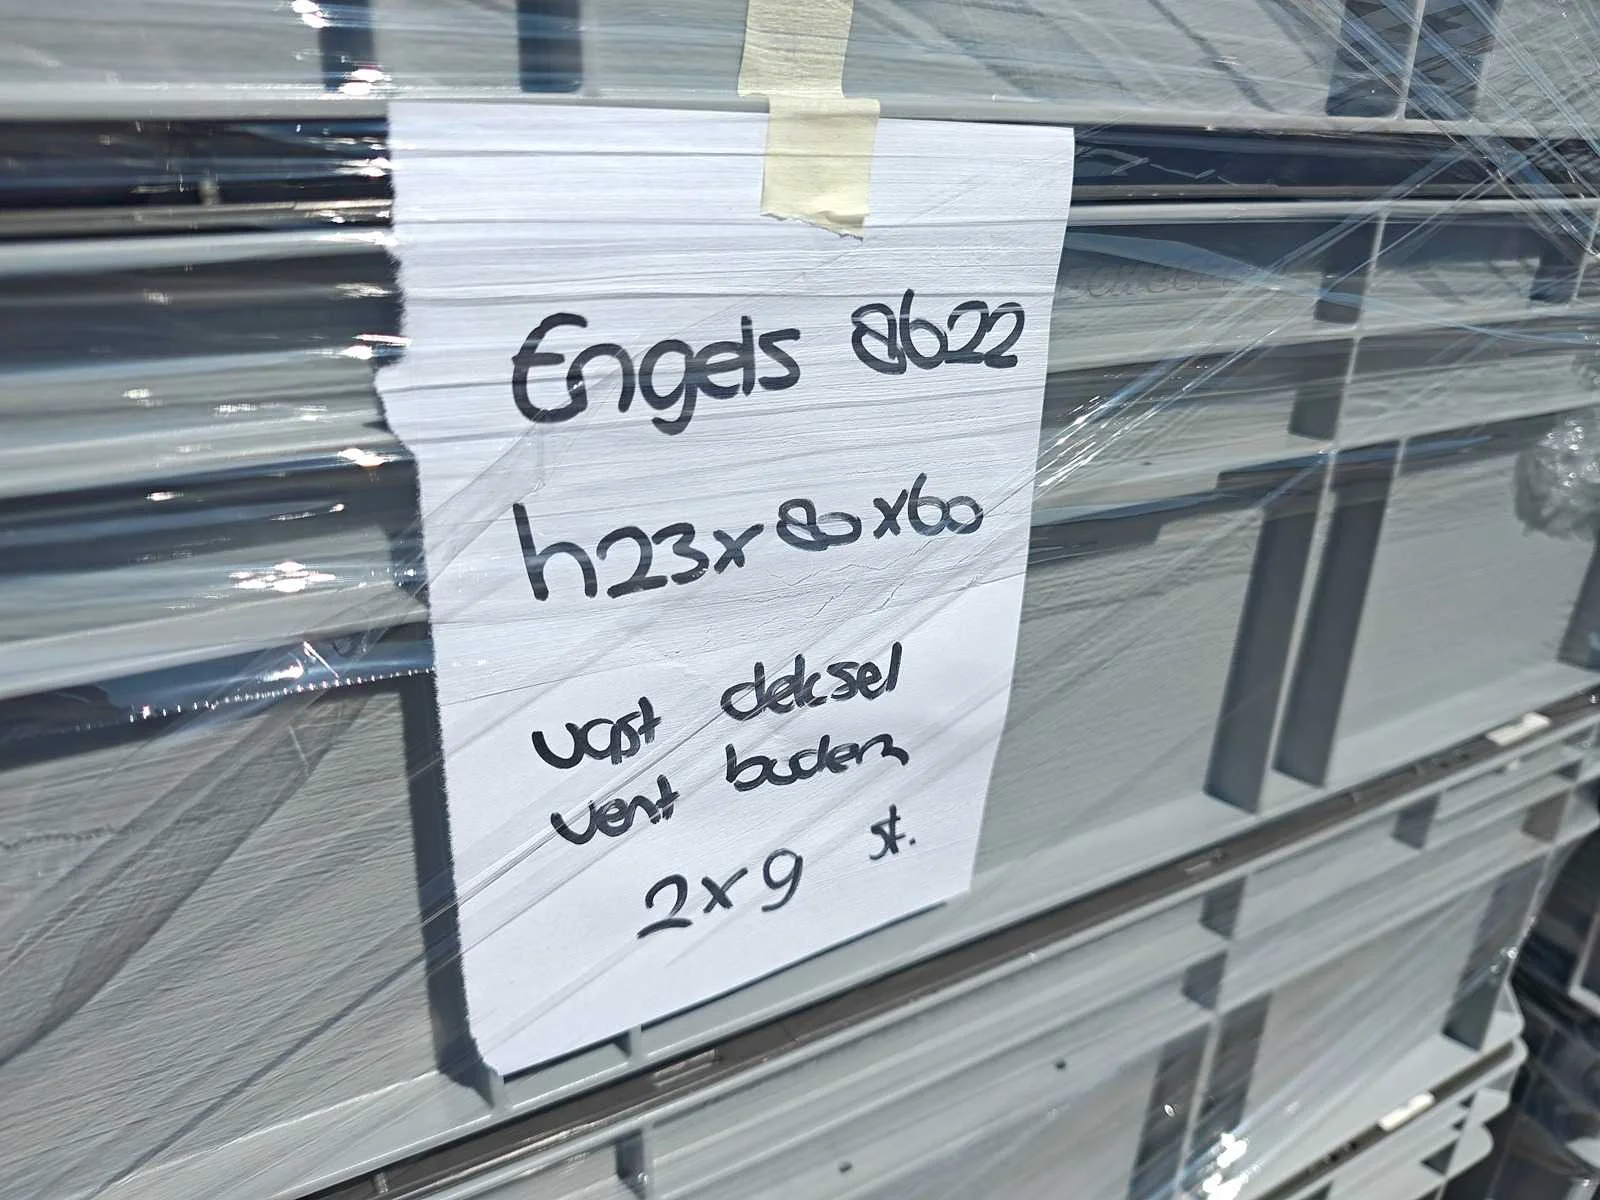 Engels 8622
h23x80x60
vast deksel
vent bodem
2x9 st.